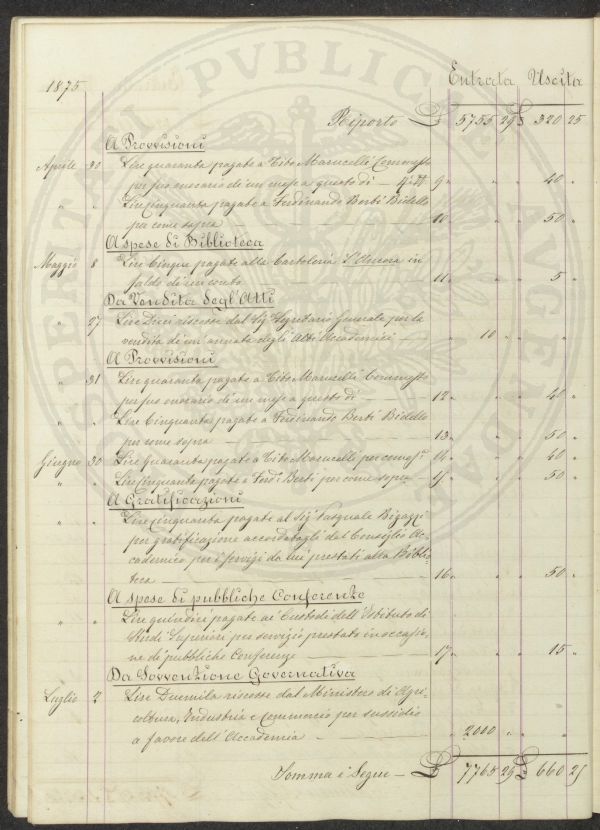 1875
Entrata Uscita
Riporto £ 5755 29 £ 320 25
A Provvisioni
Aprile 30 Lire quaranta pagate a Tito Marucelli Commesso
per suo onorario di un mese a questo dì — 9 " " 40 "
" " Lire Cinquanta pagate a Ferdinando Berti Bidello
per come sopra — 10 " " 50 "
A spese di Biblioteca
Maggio 8 Lire Cinque pagate alla Cartoleria L'Ancora in
saldo di un conto — 11 " " 5 "
Da Vendita degl'Atti
" 27 Lire Dieci riscosse dal Sig. Segretario Generale per la
vendita di un'annata degli Atti Accademici — " 10 " "
A Provvisioni
" 31 Lire quaranta pagate a Tito Marucelli Commesso
per suo onorario di un mese a questo dì — 12 " " 40 "
" " Lire Cinquanta pagate a Ferdinando Berti Bidello
per come sopra — 13 " " 50 "
Giugno 30 Lire Quaranta pagate a Tito Marucelli per come s.ª 14 " " 40 "
" " Lire Cinquanta pagate a Ferd.º Berti per come sopra — 15 " " 50 "
A Gratificazioni
" " Lire Cinquanta pagate al Sig. Pasquale Bigazzi
per gratificazione accordatagli dal Consiglio Ac-
cademico per i servizi da lui prestati alla Biblio-
teca — 16 " " 50 "
A spese di pubbliche Conferenze
" " Lire quindici pagate ai Custodi dell'Istituto di
Studi Superiori per servizio prestato in occasio-
ne di pubbliche Conferenze — 17 " " 15 "
Da Sovvenzione Governativa
Luglio 2 Lire Duemila riscosse dal Ministero di Agri-
coltura, Industria e Commercio per sussidio
a favore dell'Accademia — " 2000 " "
Somma e Segue — £ 7765 29 £ 660 25